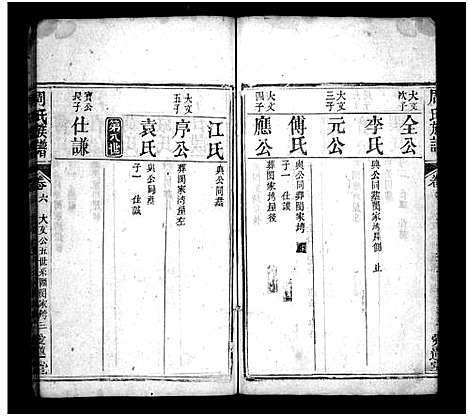 周氏族譜
大文次子
全公
李氏
與公同墓閔家塆屋側 止
大文三子
元公
傅氏
與公同葬閔家塆
子一 仕謨
大文四子
應公
葬閔家塆屋後
江氏
與公同墓
大文五子
序公
葬閔家塆屋左
袁氏
與公同墓
子一 仕誠
第八世
寶公長子
仕謙
周氏族譜
卷六
大文公五世系
愛蓮堂